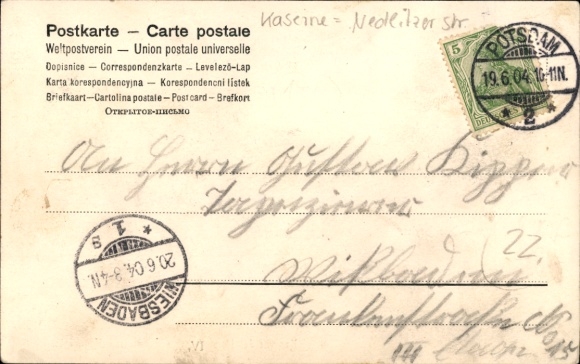 Kaserne = Nedlitzer Str.
Postkarte — Carte postale
Weltpostverein — Union postale universelle
Dopisnice — Correspondenzkarte — Levelező-Lap
Karta korespondencyjna — Korespondencni lístek
Briefkaart — Cartolina postale — Post card — Brefkort
Открытое-письмо
5
POTSDAM
19.6.04. 10-11N.
* 2 *
An Herrn Gustav
Tapezierer
22.
Wiesbaden
Frankenstraße No
15
WIESBADEN
20.6.04. 3-4N.
* 1 s